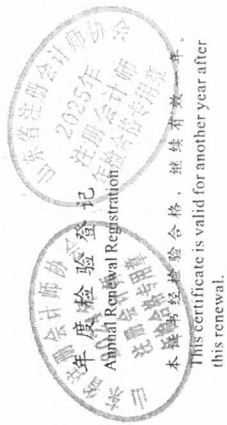 年度检验登记
Annual Renewal Registration
本证书经检验合格，继续有效一年。
This certificate is valid for another year after
this renewal.
山东省注册会计师协会
2025年
注册会计师
年检合格专用章